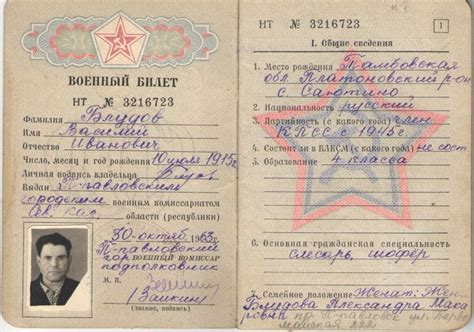 ВОЕННЫЙ БИЛЕТ
НТ № 3216723
Фамилия Блудов
Имя Василий
Отчество Иванович
Число, месяц и год рождения 10 июля 1915г.
Личная подпись владельца
Выдан П-павловским
городским военным комиссариатом
Сев. Каз. области (республики)
30 октября 1963г.
П-павловский
гор ВОЕННЫЙ КОМИССАР
подполковник
(звание, подпись)
НТ № 3216723
1
I. Общие сведения
1. Место рождения Тамбовская
обл Платоновский р-он
с.
2. Национальность русский
3. Партийность (с какого года) член
КПСС с 1945г.
4. Состоит ли в ВЛКСМ (с какого года) не сост
5. Образование 4 класса
6. Основная гражданская специальность
слесарь, шофёр
7. Семейное положение Женат: Жена
Блудова Александра Мака
ровна П-павловск ул. Перво
майская 222